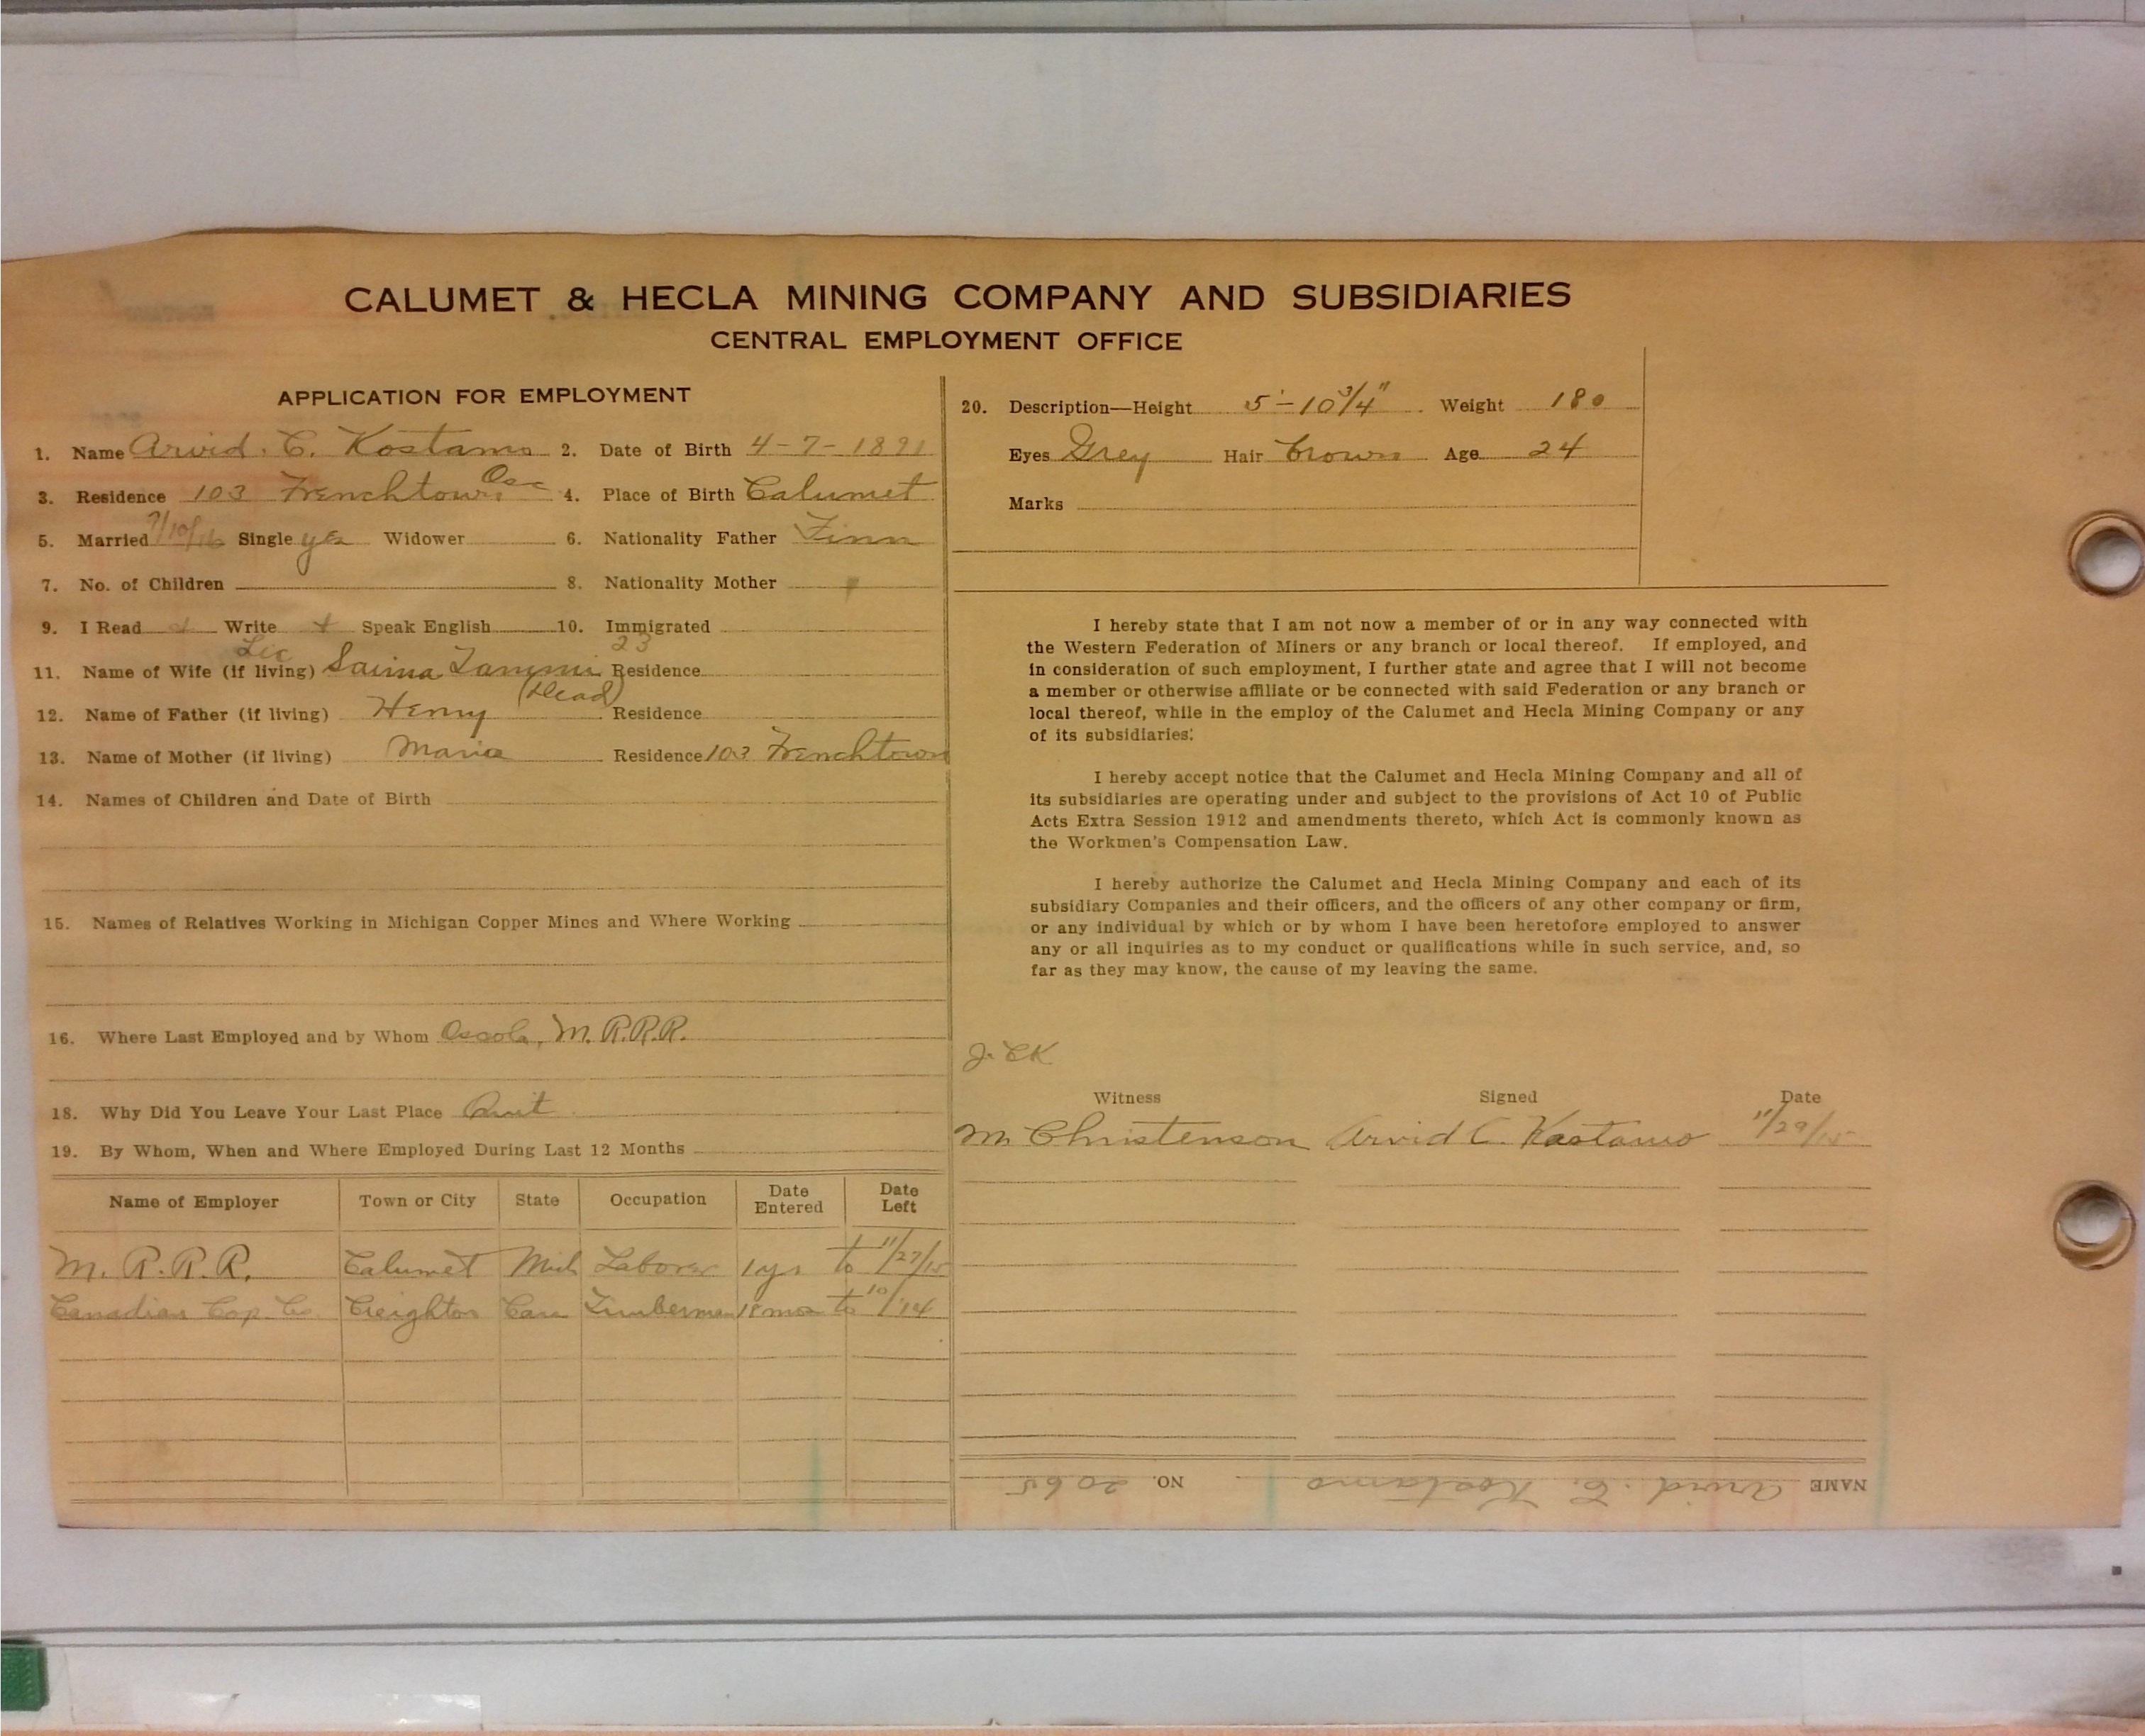 CALUMET & HECLA MINING COMPANY AND SUBSIDIARIES
CENTRAL EMPLOYMENT OFFICE
APPLICATION FOR EMPLOYMENT
1. Name Arvid. C. Kostamo 2. Date of Birth 4-7-1891
3. Residence 103 Frenchtown Osc 4. Place of Birth Calumet
5. Married 9/10/16 Single yes Widower 6. Nationality Father Finn
7. No. of Children 8. Nationality Mother "
9. I Read Write Speak English 10. Immigrated
Lic 23
11. Name of Wife (if living) Saima Lammi Residence
12. Name of Father (if living) Henry (Dead) Residence
13. Name of Mother (if living) Maria Residence 103 Frenchtown
14. Names of Children and Date of Birth
15. Names of Relatives Working in Michigan Copper Mines and Where Working
16. Where Last Employed and by Whom Osceola, M. R.R.R.
18. Why Did You Leave Your Last Place Quit
19. By Whom, When and Where Employed During Last 12 Months
Name of Employer Town or City State Occupation Date Entered Date Left
M. R.R.R. Calumet Mich Laborer 1 yr to 11/27/15
Canadian Cop. Co. Creighton Can Timberman 18 mos to 10/'14
20. Description—Height 5'-10 3/4" Weight 180
Eyes Grey Hair brown Age 24
Marks
I hereby state that I am not now a member of or in any way connected with
the Western Federation of Miners or any branch or local thereof. If employed, and
in consideration of such employment, I further state and agree that I will not become
a member or otherwise affiliate or be connected with said Federation or any branch or
local thereof, while in the employ of the Calumet and Hecla Mining Company or any
of its subsidiaries.
I hereby accept notice that the Calumet and Hecla Mining Company and all of
its subsidiaries are operating under and subject to the provisions of Act 10 of Public
Acts Extra Session 1912 and amendments thereto, which Act is commonly known as
the Workmen's Compensation Law.
I hereby authorize the Calumet and Hecla Mining Company and each of its
subsidiary Companies and their officers, and the officers of any other company or firm,
or any individual by which or by whom I have been heretofore employed to answer
any or all inquiries as to my conduct or qualifications while in such service, and, so
far as they may know, the cause of my leaving the same.
J. CK
Witness Signed Date
M Christenson Arvid C. Kostamo 11/29/15
NAME Arvid. C. Kostamo NO. 2065